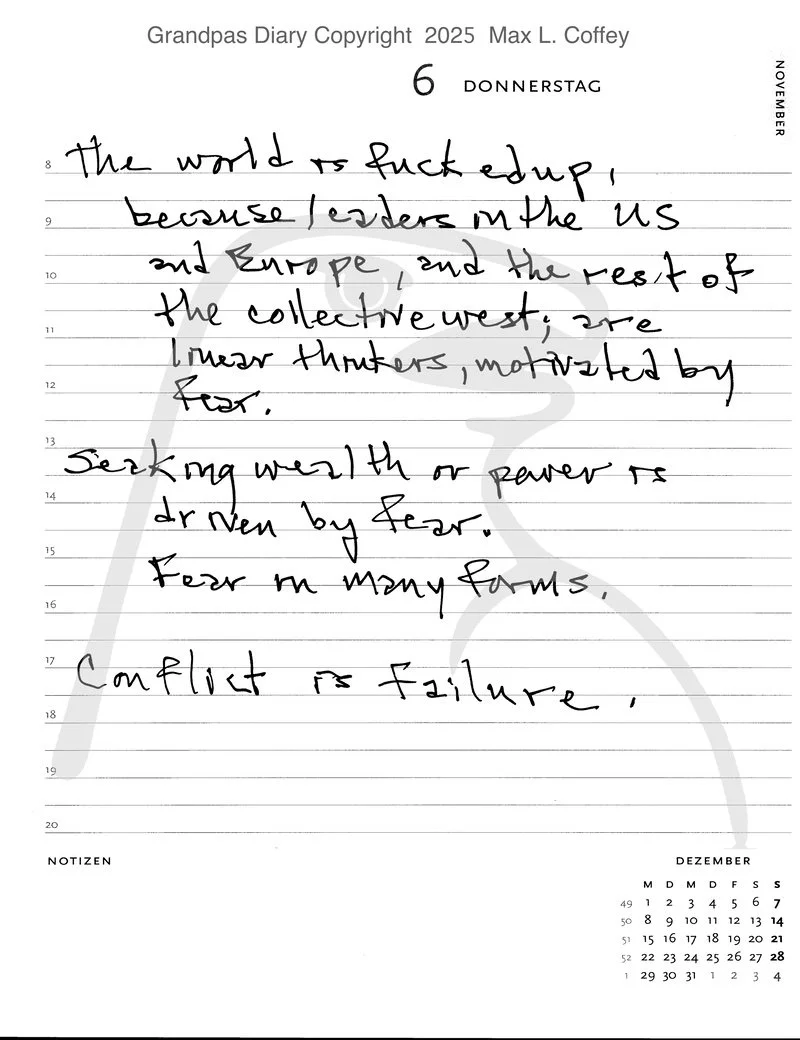 Grandpas Diary Copyright 2025 Max L. Coffey
6 DONNERSTAG
NOVEMBER
8 The world is fucked up,
9 because leaders in the US
and Europe, and the rest of
10 the collective west; are
11 linear thinkers, motivated by
12 fear.
13 Seeking wealth or power is
14 driven by fear.
15 Fear in many forms.
16
17 Conflict is failure.
18
19
20
NOTIZEN
DEZEMBER
M D M D F S S
49 1 2 3 4 5 6 7
50 8 9 10 11 12 13 14
51 15 16 17 18 19 20 21
52 22 23 24 25 26 27 28
1 29 30 31 1 2 3 4